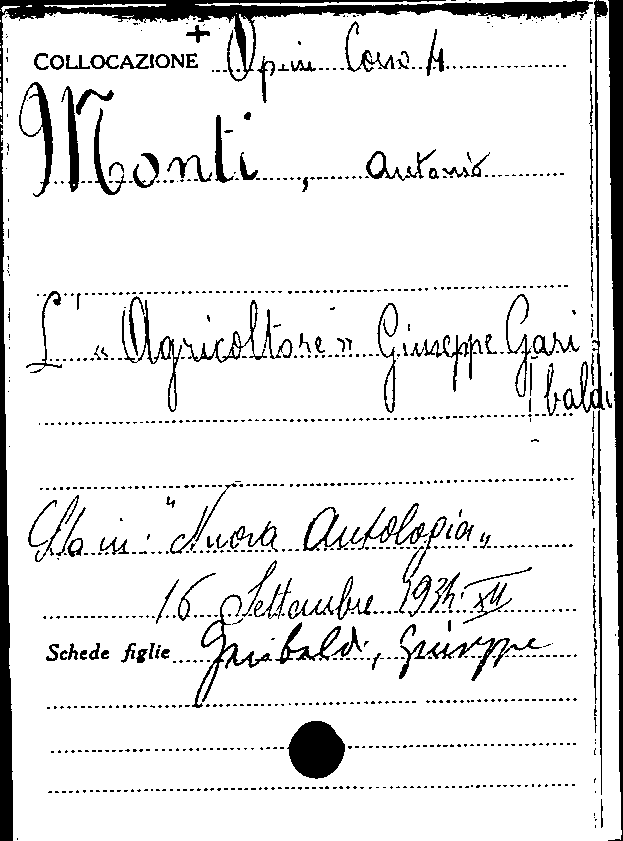 +
COLLOCAZIONE Opin. Corso 4
Monti, Antonio
L' « Agricoltore » Giuseppe Gari
baldi
Sta in: "Nuova Antologia"
16 Settembre 1934. XII
Schede figlie Garibaldi, Giuseppe